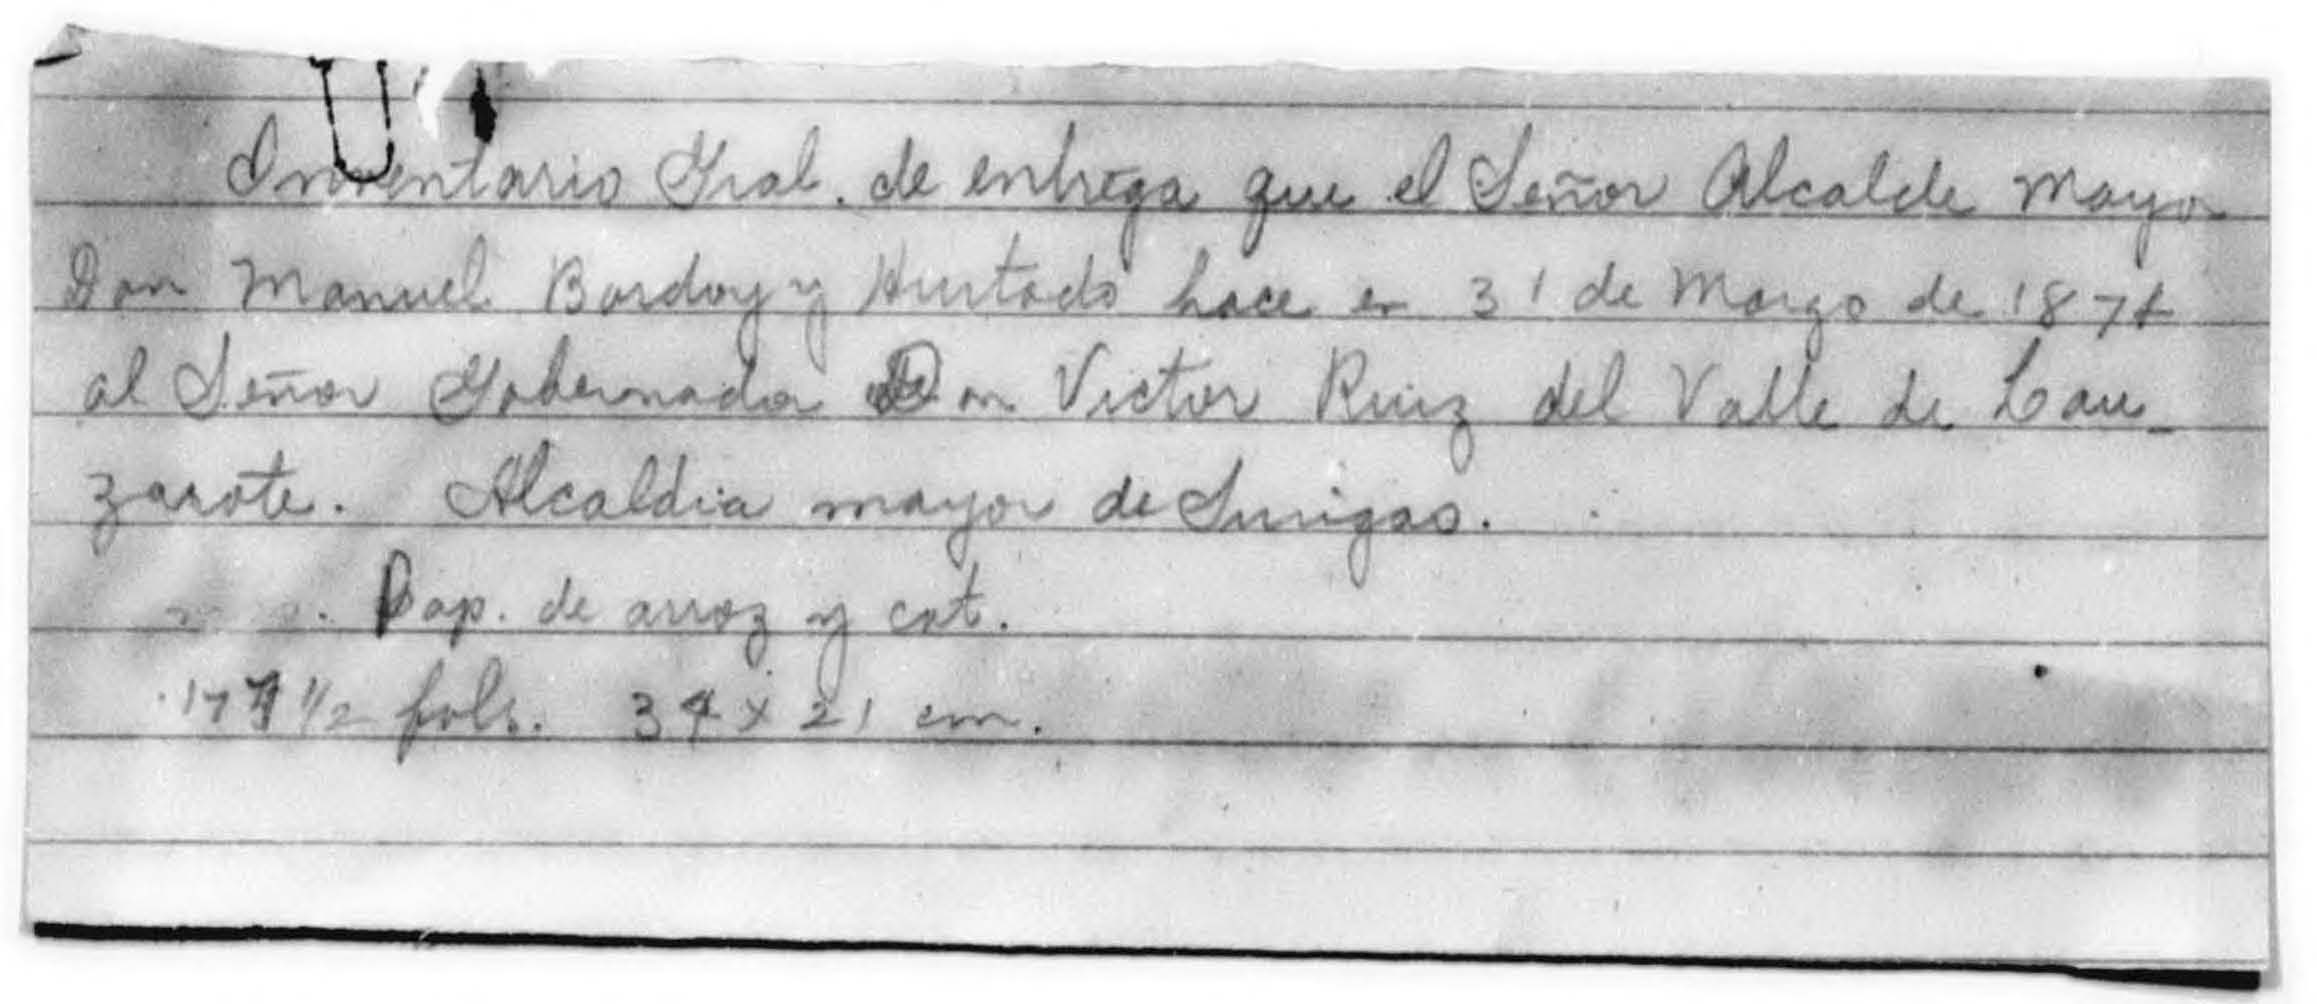 Inventario Gral. de entrega que el Señor Alcalde mayor
Don Manuel Bordoy y Hurtado hace en 31 de Marzo de 1874
al Señor Gobernador Don Victor Ruiz del Valle de Lan-
zarote. Alcaldia mayor de Surigao.
Pap. de arroz y cat.
1/2 fols. 34 x 21 cm.